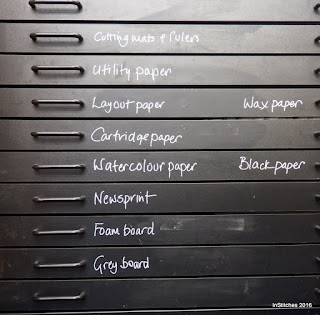 Cutting mats & rulers
Utility paper
Layout paper Wax paper
Cartridge paper
Watercolour paper Black paper
Newsprint
Foam board
Grey board
InStitches 2016